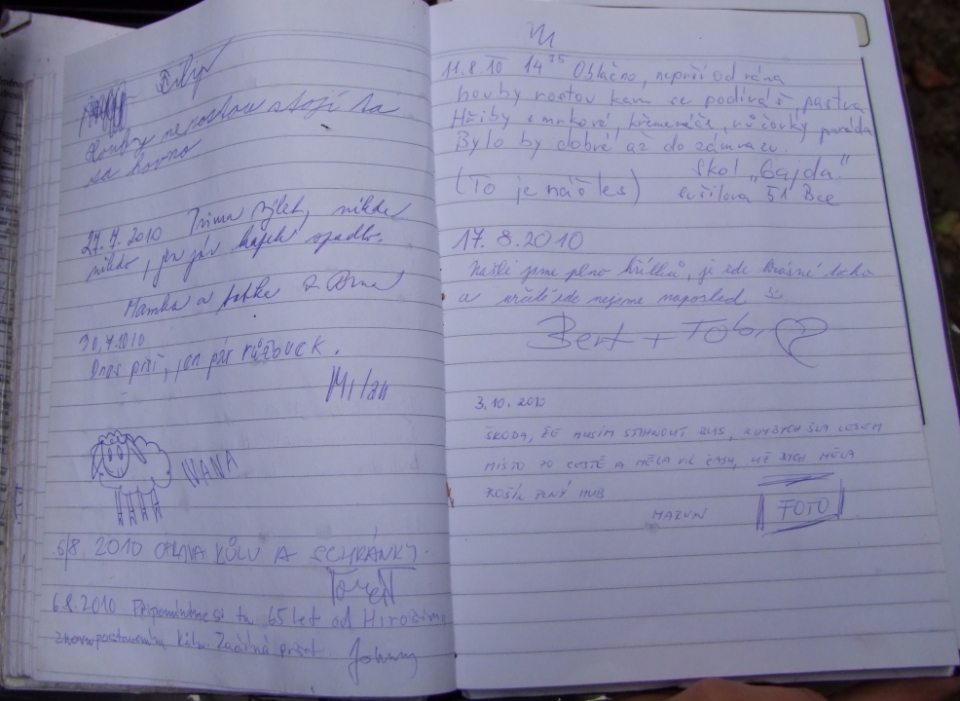 Houby nerostou stojí za
27.7.2010 Prima výlet, nikde
nikdo, jen pár kapek spadlo.
Mamka a taťka z Brna
30.7.2010
Dnes prší, jen pár růžovek.
Milan
IVANA
6/8. 2010 OPRAVA KŮLU A SCHRÁNKY.
6.8.2010 Připomínáme si tu 65 let od Hirošimi
kůlu. Začíná pršet. Johnny
11.8.10 14 35 Oblačno, neprší od rána
houby rostou kam se podíváš, pastva
Hřiby smrkové, křemenáče, růžovky paráda
Bylo by dobré až do zámrazu.
Skol "Gajda"
(To je náš les) 51 Bce
17.8.2010
Našli jsme plno hříbků, je zde krásné
a určitě zde nejsme naposled
Bert + Tob
3.10.2010
ŠKODA, ŽE MUSÍM STIHNOUT BUS, KDYBYCH ŠLA LESEM
MÍSTO PO CESTĚ A MĚLA VÍC ČASU, UŽ BYCH MĚLA
KOŠÍK PLNÝ HUB
FOTO